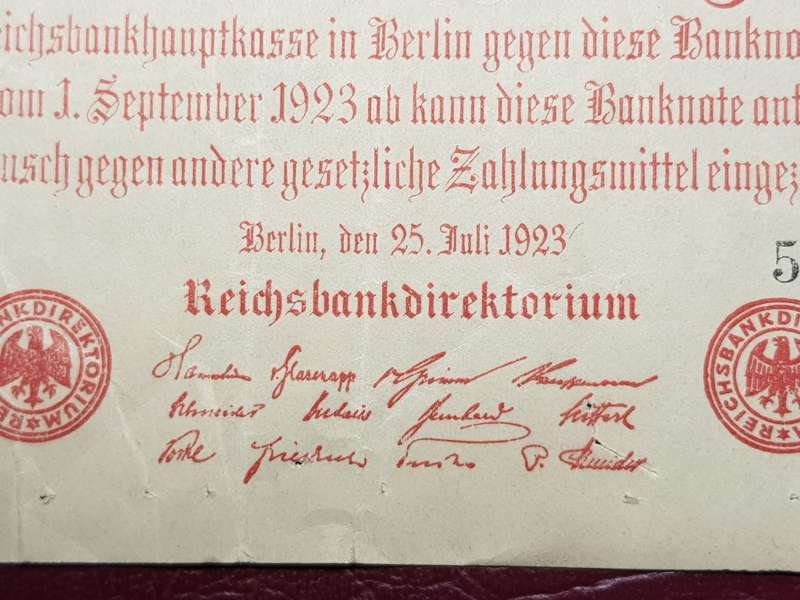 eichsbankhauptkasse in Berlin gegen diese Bankno
om 1. September 1923 ab kann diese Banknote auf
usch gegen andere gesetzliche Zahlungsmittel eingez
Berlin, den 25. Juli 1923
5
Reichsbankdirektorium
NKDIREKTORIUM ★ RE
REICHSBANKDI
v. Glasenapp v. Grimm Kauffmann
Schneider Budczies Bernhard Seiffert
Vocke Friedrich Fuchs P. Schneider